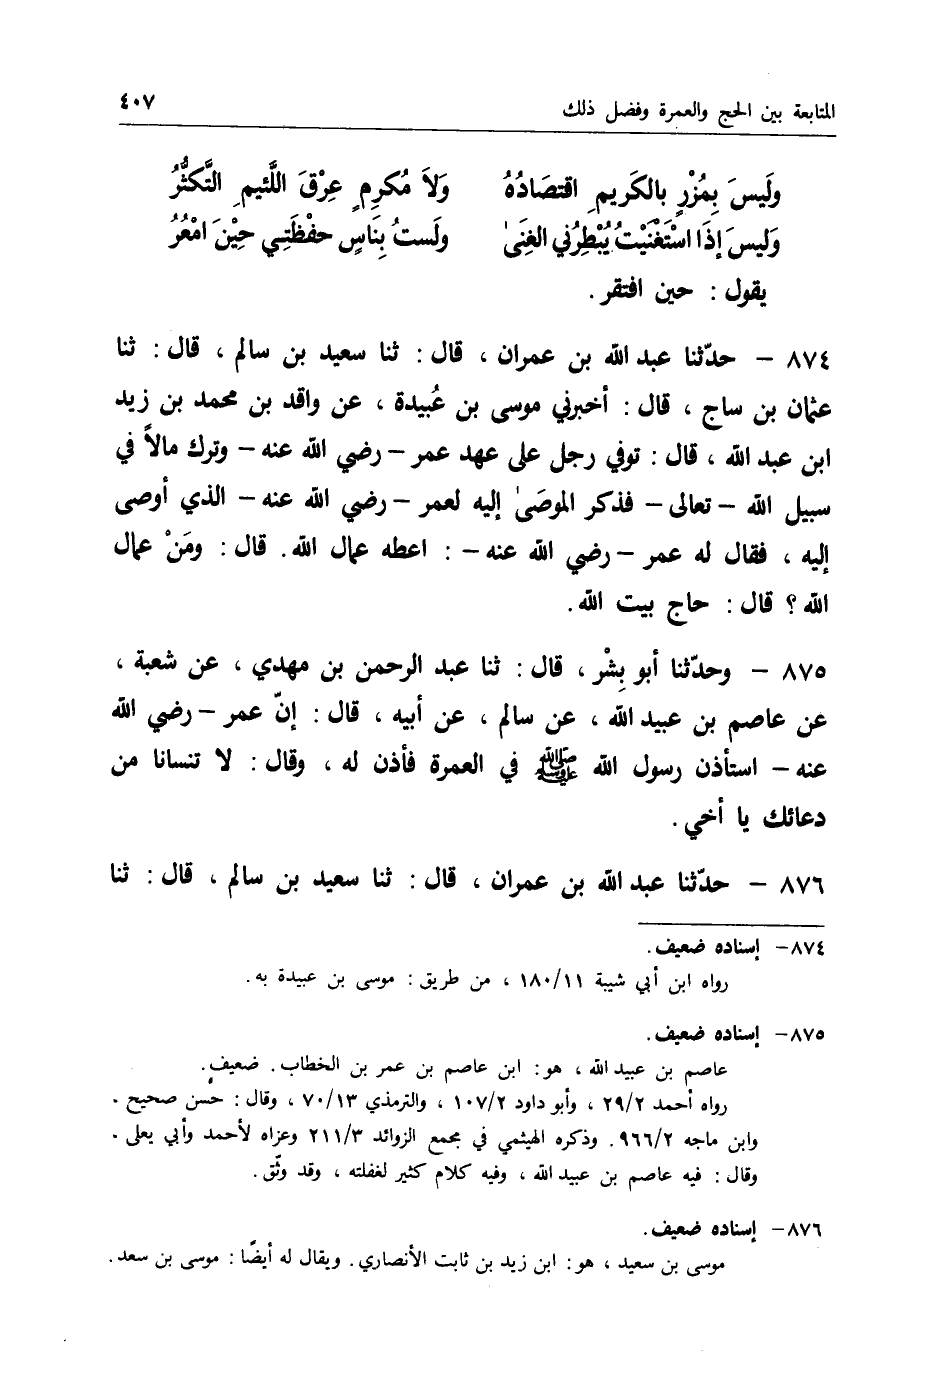 المتابعة بين الحج والعمرة وفضل ذلك ٤٠٧
وَلَيسَ بِمُزْرٍ بالكَريمِ اقتصَادُهُ وَلاَ مُكرِمٍ عِرْقَ اللَّئيمِ التَّكثُّرُ
وَليسَ إذَا اسْتَغْنَيْتُ يُبْطِرُني الغِنَىٰ ولَستُ بِنَاسٍ حفْظَتِي حِيْنَ امْعُرُ
يقول : حين افتقر .
٨٧٤ – حدّثنا عبد الله بن عمران ، قال : ثنا سعيد بن سالم ، قال : ثنا
عثمان بن ساج ، قال : أخبرني موسى بن عُبيدة ، عن واقد بن محمد بن زيد
ابن عبد الله ، قال : توفي رجل على عهد عمر – رضي الله عنه – وترك مالاً في
سبيل الله – تعالى – فذكر الموصَىٰ إليه لعمر – رضي الله عنه – الذي أوصى
إليه ، فقال له عمر – رضي الله عنه – : اعطه عمال الله . قال : ومَنْ عمال
الله ؟ قال : حاج بيت الله .
٨٧٥ – وحدّثنا أبو بِشْر ، قال : ثنا عبد الرحمن بن مهدي ، عن شعبة ،
عن عاصم بن عبيد الله ، عن سالم ، عن أبيه ، قال : إنّ عمر – رضي الله
عنه – استأذن رسول الله ﷺ في العمرة فأذن له ، وقال : لا تنسانا من
دعائك يا أخي .
٨٧٦ – حدّثنا عبد الله بن عمران ، قال : ثنا سعيد بن سالم ، قال : ثنا
٨٧٤– إسناده ضعيف .
رواه ابن أبي شيبة ١٨٠/١١ ، من طريق : موسى بن عبيدة به .
٨٧٥– إسناده ضعيف .
عاصم بن عبيد الله ، هو : ابن عاصم بن عمر بن الخطاب . ضعيف .
رواه أحمد ٢٩/٢ ، وأبو داود ١٠٧/٢ ، والترمذي ٧٠/١٣ ، وقال : حسن صحيح .
وابن ماجه ٩٦٦/٢ . وذكره الهيثمي في مجمع الزوائد ٢١١/٣ وعزاه لأحمد وأبي يعلى .
وقال : فيه عاصم بن عبيد الله ، وفيه كلام كثير لغفلته ، وقد وثّق .
٨٧٦– إسناده ضعيف .
موسى بن سعيد ، هو : ابن زيد بن ثابت الأنصاري . ويقال له أيضًا : موسى بن سعد .